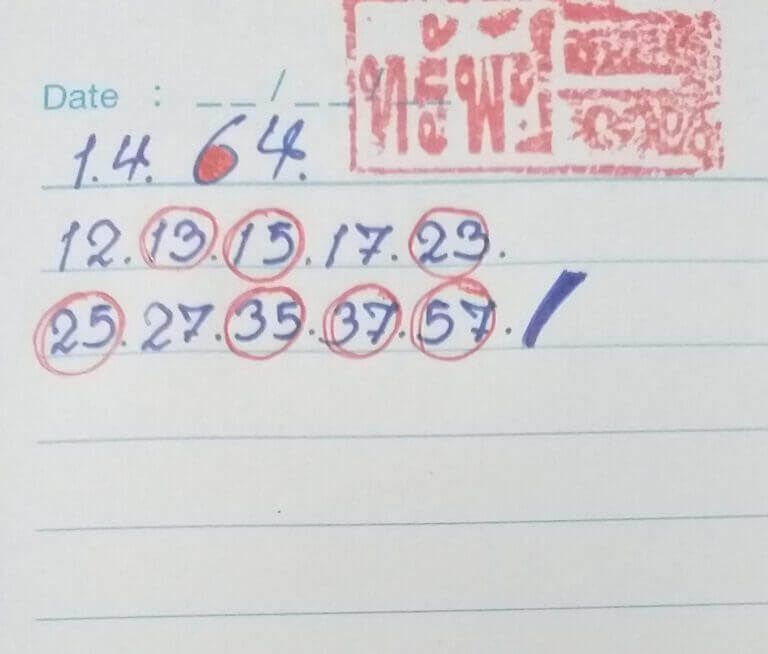 Date : __/__/__
1.4. 64.
12. 13. 15. 17. 23.
25. 27. 35. 37. 57. /